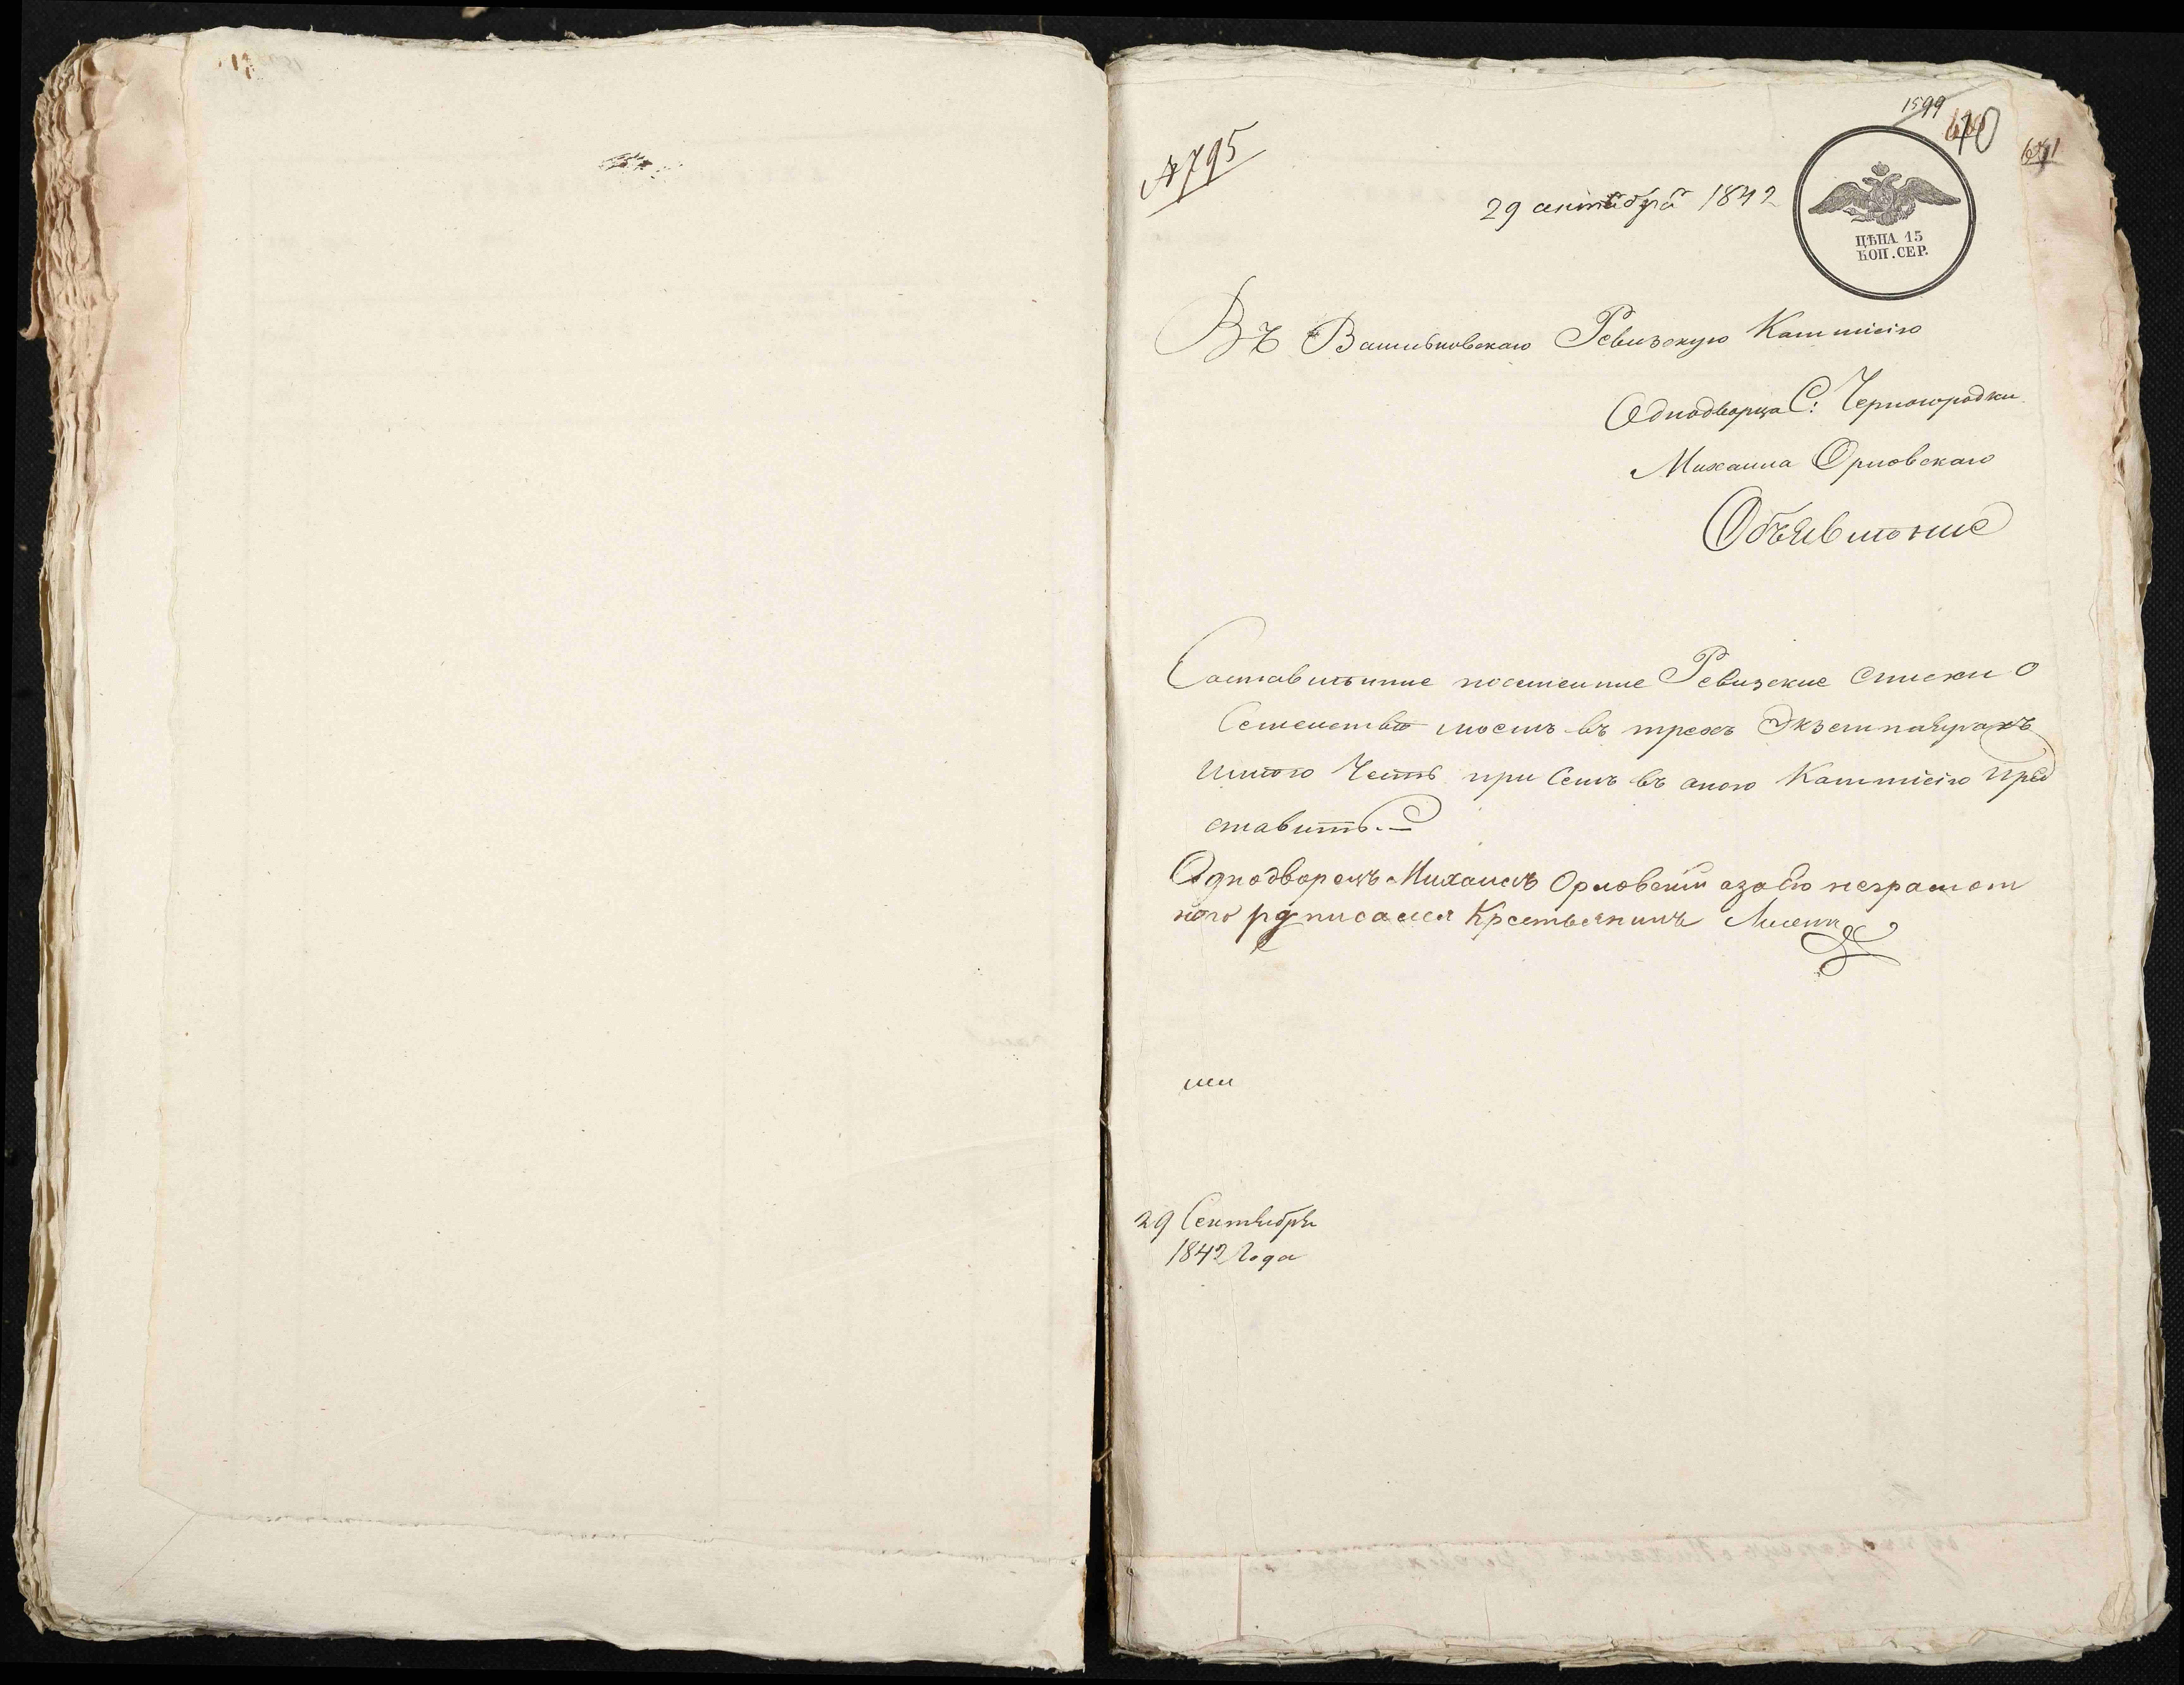 № 795
1599
610
29 октября 1842
ЦѢНА 15
КОП. СЕР.
Въ Васильковскаю Ревизскую Коммисію
Однодворца С: Черногородки
Михаила Орловскаго
Объявление
Составленние посемейние Ревизские Списки О
Семействе моемъ въ трехъ Экземплярахъ
имею Честь при Семъ въ оною Коммисію Пред
ставить.—
Однодворецъ Михаилъ Орловский азаего неграмот
ного росписался Крестьянинъ
29 Сентября
1842 Года